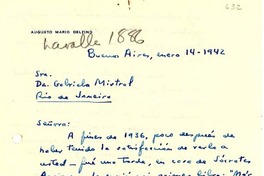 632
AUGUSTO MARIO DELFINO
Lavalle 1886
Buenos Aires, enero 14-1942
Sra.
Da. Gabriela Mistral
Río de Janeiro
Señora:
A fines de 1936, poco después de
haber tenido la satisfacción de verla a
usted - fué una tarde, en casa de Sócrates